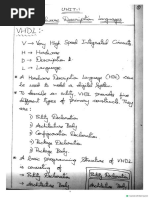 UNIT:-1
Hardware Description Languages
VHDL:-
V → Very High Speed Integrated Circuits
H → Hardware
D → Description &
L → Language
• A Hardware Description Language (HDL) can
be used to model a digital system.
• To describe an entity, VHDL provides five
different types of primary constructs. They
are:
1) Entity Declaration
2) Architecture Body
3) Configuration Declaration
4) Package Declaration
5) Package Body.
• A basic programming structure of VHDL
is consisting of
1) Entity Declaration
2) Architecture Body
Entity Declaration
Architecture Body